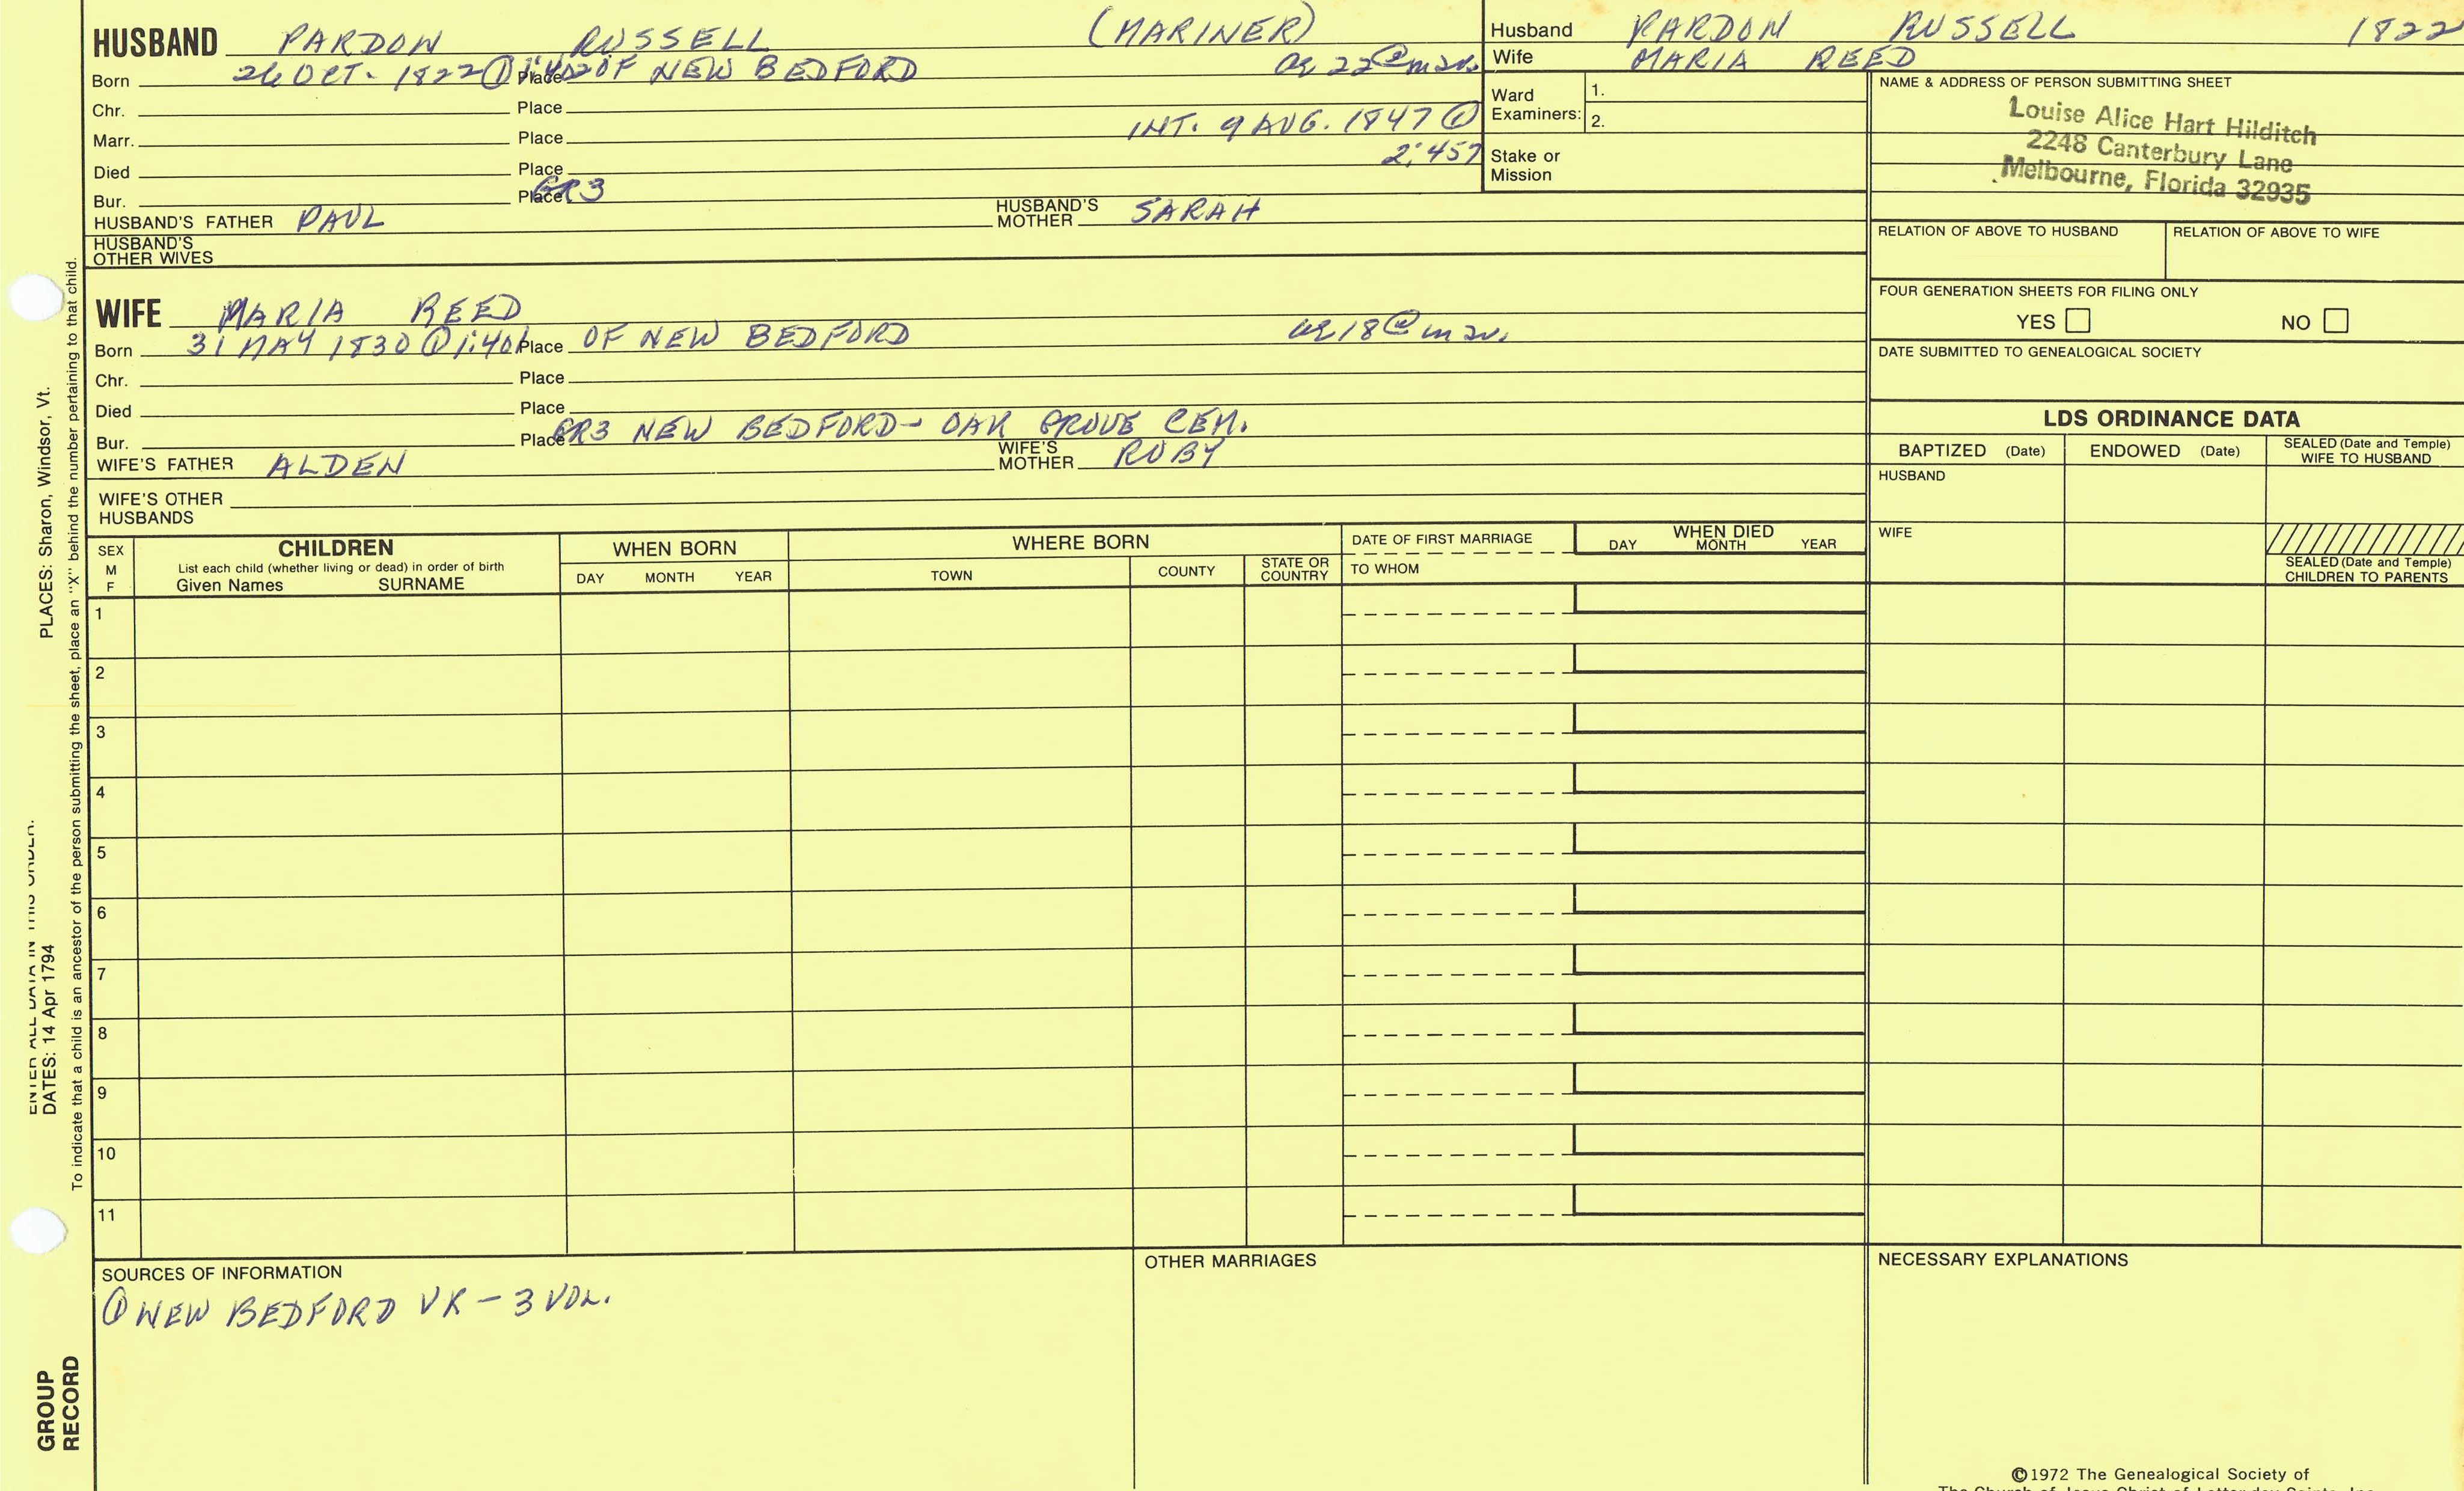 HUSBAND PARDON RUSSELL (MARINER)
Born 26 OCT. 1822 ① Place OF NEW BEDFORD ae 22 @ mar.
Chr. Place
Marr. Place INT. 9 AUG. 1847 ①
Died Place 2:457
Bur. Place GR3
HUSBAND'S FATHER PAUL HUSBAND'S MOTHER SARAH
HUSBAND'S OTHER WIVES
Husband PARDON RUSSELL 1822
Wife MARIA REED
Ward Examiners: 1.
2.
Stake or Mission
NAME & ADDRESS OF PERSON SUBMITTING SHEET
Louise Alice Hart Hilditch
2248 Canterbury Lane
Melbourne, Florida 32935
RELATION OF ABOVE TO HUSBAND RELATION OF ABOVE TO WIFE
FOUR GENERATION SHEETS FOR FILING ONLY
YES NO
DATE SUBMITTED TO GENEALOGICAL SOCIETY
WIFE MARIA REED
Born 31 MAY 1830 ① 1:401 Place OF NEW BEDFORD ae 18 @ mar.
Chr. Place
Died Place
Bur. Place GR3 NEW BEDFORD - OAK GROVE CEM.
WIFE'S FATHER ALDEN WIFE'S MOTHER RUBY
WIFE'S OTHER HUSBANDS
LDS ORDINANCE DATA
BAPTIZED (Date) ENDOWED (Date) SEALED (Date and Temple) WIFE TO HUSBAND
HUSBAND
WIFE
SEALED (Date and Temple) CHILDREN TO PARENTS
SEX M F
CHILDREN
List each child (whether living or dead) in order of birth
Given Names SURNAME
WHEN BORN
DAY MONTH YEAR
WHERE BORN
TOWN COUNTY STATE OR COUNTRY
DATE OF FIRST MARRIAGE
TO WHOM
WHEN DIED
DAY MONTH YEAR
1
2
3
4
5
6
7
8
9
10
11
SOURCES OF INFORMATION
① NEW BEDFORD VR - 3 VOL.
OTHER MARRIAGES
NECESSARY EXPLANATIONS
©1972 The Genealogical Society of
The Church of Jesus Christ of Latter-day Saints, Inc.
ENTER ALL DATA IN THIS ORDER:
DATES: 14 Apr 1794 PLACES: Sharon, Windsor, Vt.
To indicate that a child is an ancestor of the person submitting the sheet, place an "X" behind the number pertaining to that child.
GROUP RECORD